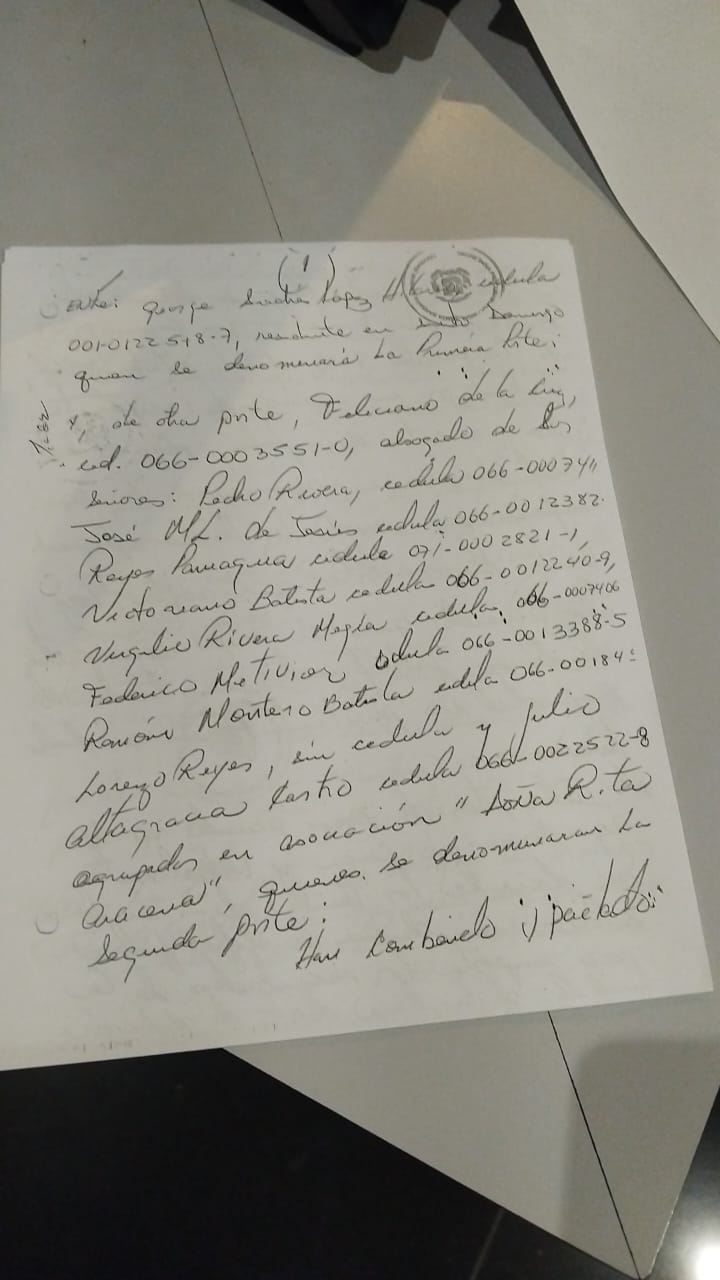 (1)
Entre: George Sánchez López cedula
001-0122518-7, residente en Santo Domingo
quien se denominará La Primera Pte;
y, de otra pnte, Feliciano de la Cruz,
ced. 066-0003551-0, abogado de los
Señores: Pedro Rivera, cedula 066-00074
José Ml. de Jesús cedula 066-0012382
Reyes Paniagua cedula 071-0002821-1,
Victoriano Batista cedula 066-0012240-9,
Virgilio Rivera Mejía cedula, 066-0007406
Federico Metivier cedula 066-0013388-5
Ramón Montero Batista cedula 066-00184
Lorenzo Reyes, sin cedula y Julio
Altagracia Castro cedula 066-0022522-8
agrupados en asociación "Doña Rita
Aracena", quienes se denominaran La
Segunda pnte:
Han Convenido y pactado: